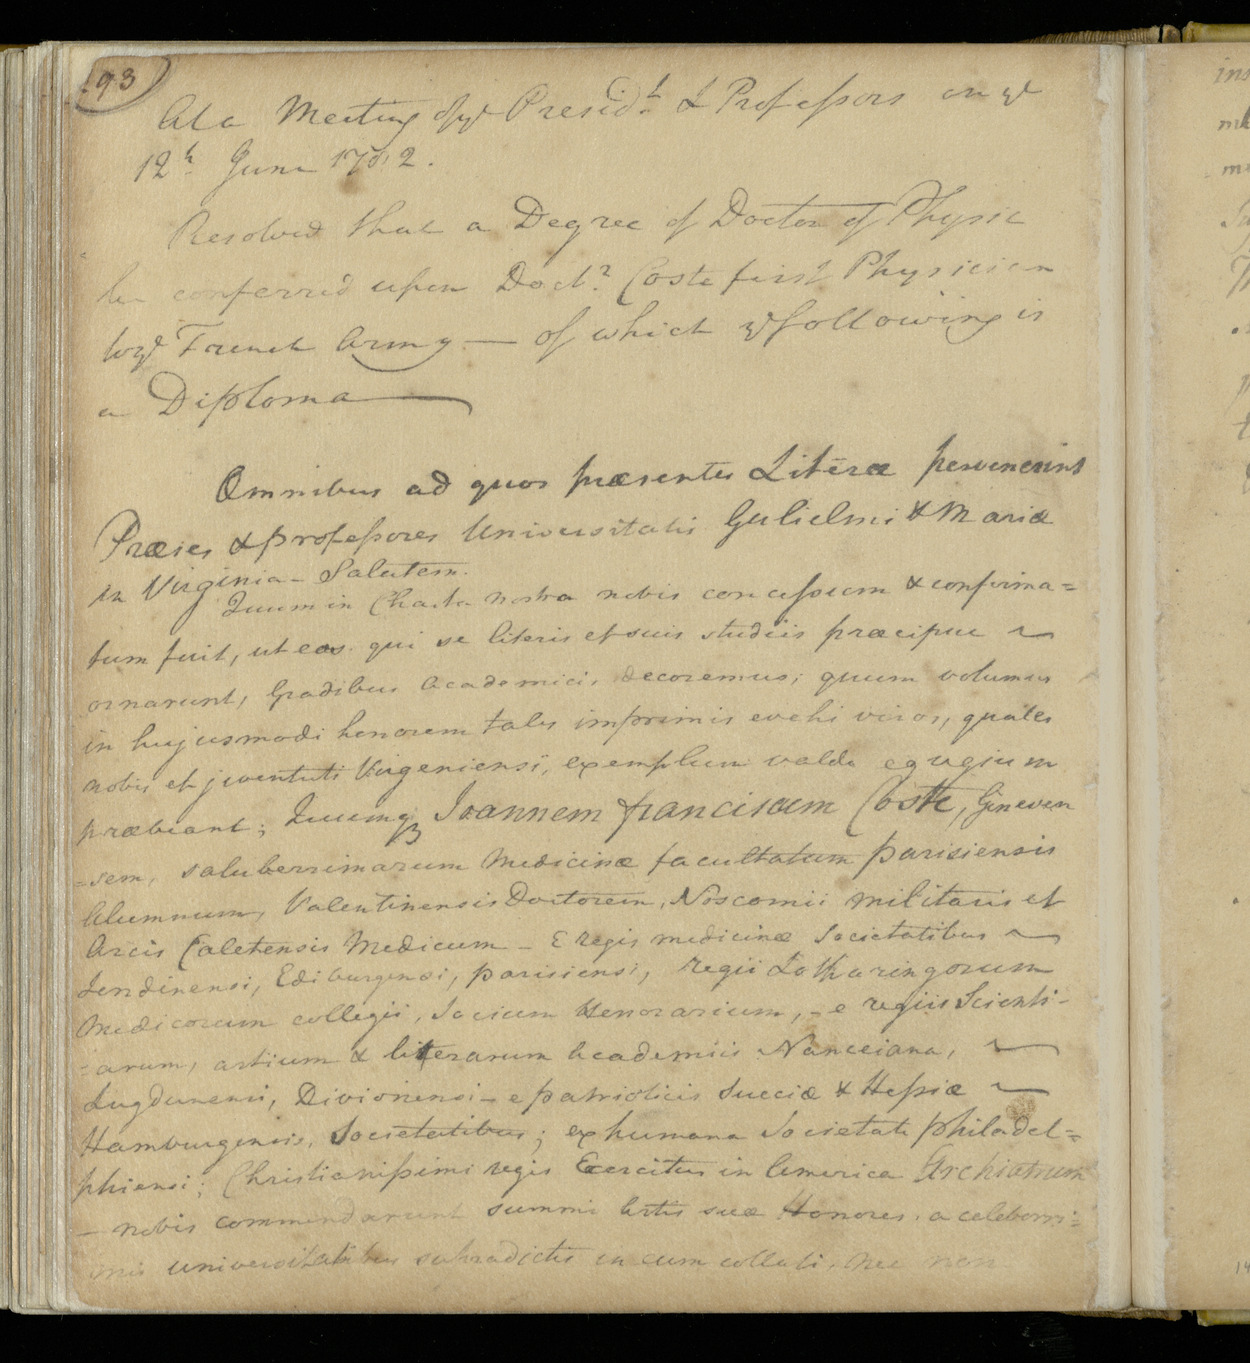 93
At a Meeting of ye Presidt. & Professors on ye
12h. June 1782.
Resolved that a Degree of Doctor of Physic
be conferred upon Doctr. Coste first Physician
to ye French Army — of which ye following is
a Diploma
Omnibus ad quos præsentes Literæ pervenerint
Præses & professores Universitatis Gulielmi & Mariæ
in Virginia – Salutem.
Quum in Charta nostra nobis concessum & confirma=
tum fuit, ut eos qui se literis et suis studiis præcipue
ornarunt, Gradibus Academicis decoremus; quum volumus
in hujusmodi honorem tales imprimis evehi viros, quales
nobis et juventuti Virgeniensi, exemplum valde egregium
præbeant; Quumq Joannem franciscum Coste, Gineven
=sem, saluberrimarum Medicinæ facultatum parisiensis
Alumnum, Valentinensis Doctorem, Noscomii militaris et
Arcis Caletensis Medicum – E regis medicinæ Societatibus
Londinensi, Ediburgensi, parisiensi, regii Lotharingorum
Medicorum collegii, Socium Honorarium, – e regiis Scienti-
=arum, artium & literarum Academiis Nanceiana,
Lugdunensi, Divionensi – e patrioticis Sueciæ & Hessiæ
Hamburgensis, Societatibus; ex humana Societate philadel=
phiensi; Christianissimi regis Exercitus in America Archiatrum
– nobis commendarunt summi Artis suæ Honores, a celeberri=
mis universitatibus suhradictis in eum collati, nec non